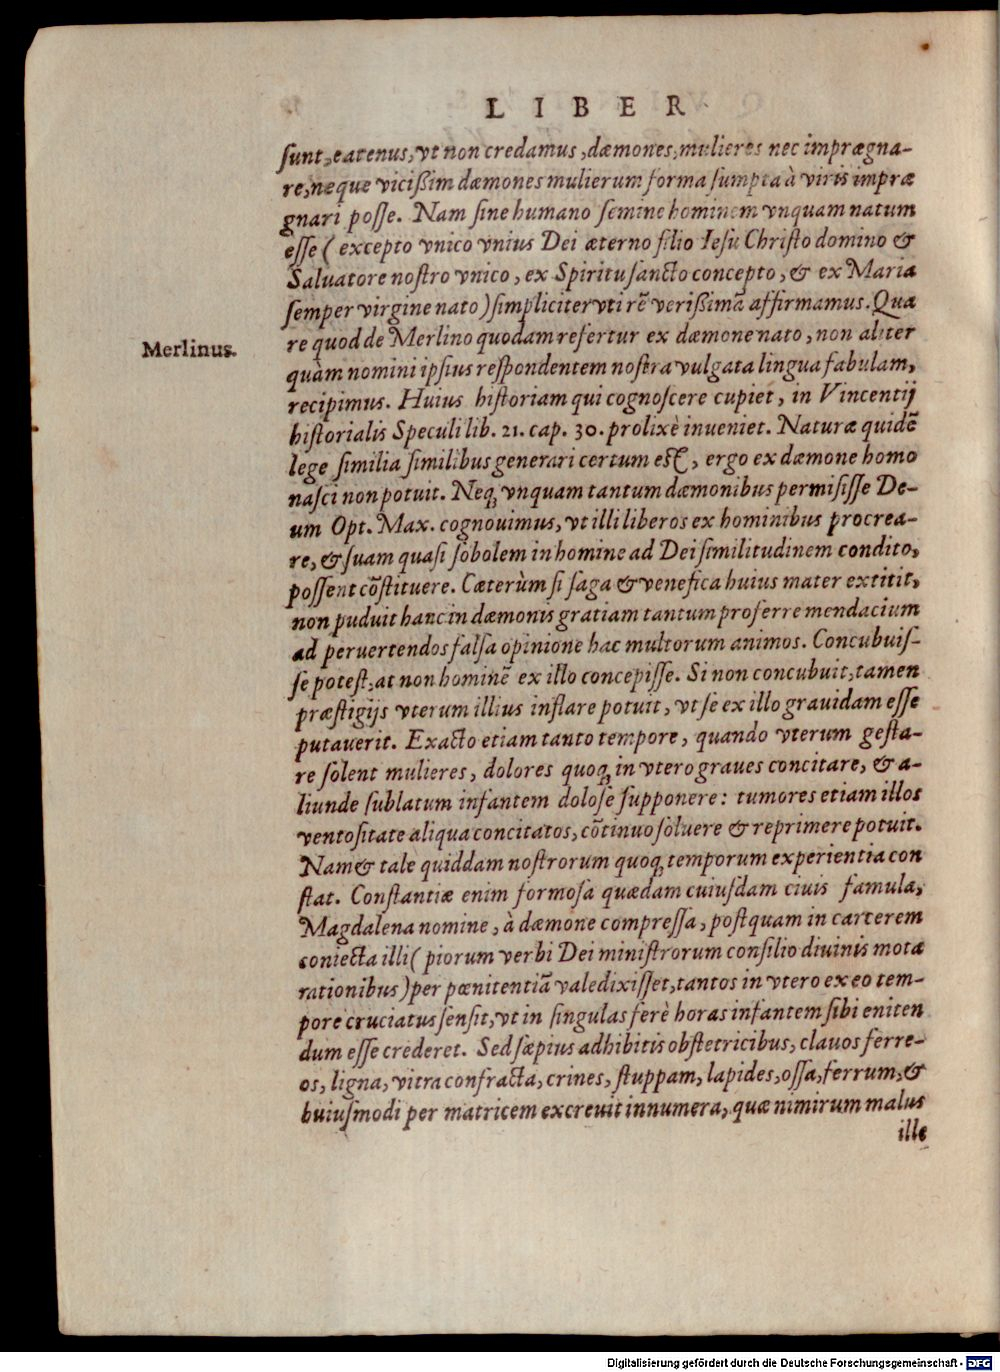 LIBER
sunt, eatenus, vt non credamus, dæmones, mulieres nec imprægna-
re, neque vicißim dæmones mulierum forma sumpta à viris impræ
gnari posse. Nam sine humano semine hominem vnquam natum
esse (excepto vnico vnius Dei æterno filio Iesu Christo domino &
Saluatore nostro vnico, ex Spiritu sancto concepto, & ex Maria
semper virgine nato) simpliciter vti rē verißimā affirmamus. Qua
re quod de Merlino quodam refertur ex dæmone nato, non aliter
Merlinus.
quàm nomini ipsius respondentem nostra vulgata lingua fabulam,
recipimus. Huius historiam qui cognoscere cupiet, in Vincentij
historialis Speculi lib. 21. cap. 30. prolixè inueniet. Naturæ quidē
lege similia similibus generari certum est, ergo ex dæmone homo
nasci non potuit. Neq; vnquam tantum dæmonibus permisisse De-
um Opt. Max. cognouimus, vt illi liberos ex hominibus procrea-
re, & suam quasi sobolem in homine ad Dei similitudinem condito,
possent cōstituere. Cæterùm si saga & venefica huius mater extitit,
non puduit hanc in dæmonis gratiam tantum proferre mendacium
ad peruertendos falsa opinione hac multorum animos. Concubuis-
se potest, at non hominē ex illo concepisse. Si non concubuit, tamen
præstigijs vterum illius inflare potuit, vt se ex illo grauidam esse
putauerit. Exacto etiam tanto tempore, quando vterum gesta-
re solent mulieres, dolores quoq; in vtero graues concitare, & a-
liunde sublatum infantem dolosè supponere: tumores etiam illos
ventositate aliqua concitatos, cōtinuo soluere & reprimere potuit.
Nam & tale quiddam nostrorum quoq; temporum experientia con
stat. Constantiæ enim formosa quædam cuiusdam ciuis famula,
Magdalena nomine, à dæmone compressa, postquam in carcerem
coniecta illi (piorum verbi Dei ministrorum consilio diuinis mota
rationibus) per pœnitentiā valedixisset, tantos in vtero ex eo tem-
pore cruciatus sensit, vt in singulas ferè horas infantem sibi eniten
dum esse crederet. Sed sæpius adhibitis obstetricibus, clauos ferre-
os, ligna, vitra confracta, crines, stuppam, lapides, ossa, ferrum, &
huiusmodi per matricem excreuit innumera, quæ nimirum malus
ille
Digitalisierung gefördert durch die Deutsche Forschungsgemeinschaft - DFG